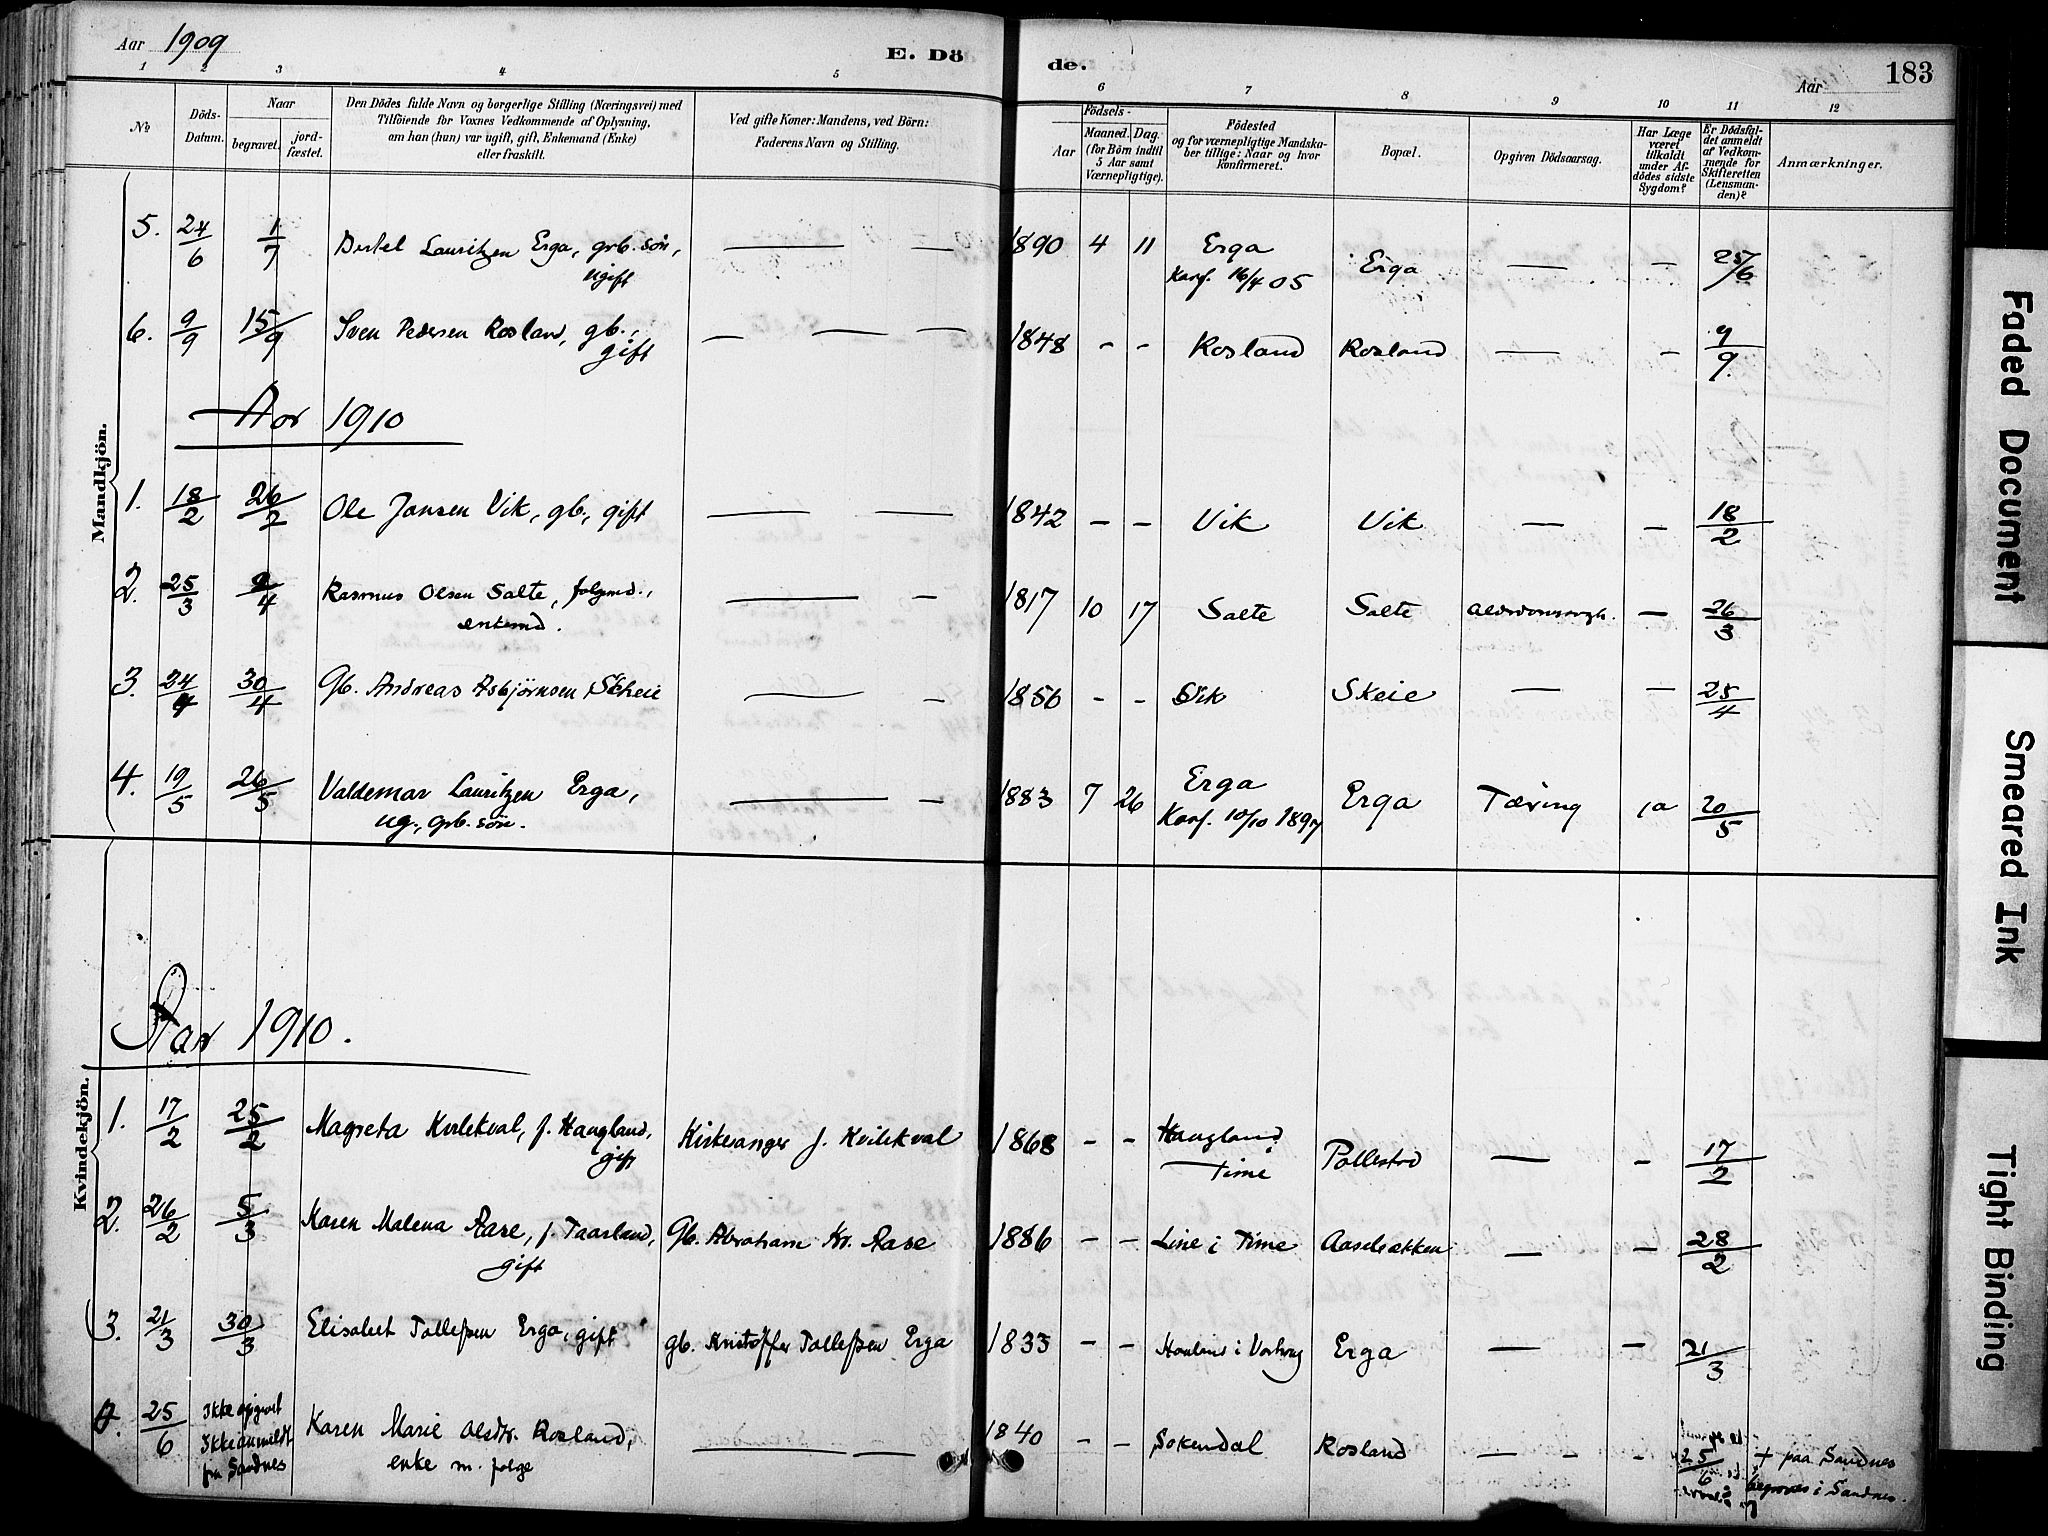 Aar 1909
E. Dö
de.
Aar
183
1 2 3 4 5 6 7 8 9 10 11 12
№
Döds-
Datum.
Naar
begravet.
jord-
fæstet.
Den Dödes fulde Navn og borgerlige Stilling (Næringsvei) med
Tilföiende for Voxnes Vedkommende af Oplysning,
om han (hun) var ugift, gift, Enkemand (Enke)
eller fraskilt.
Ved gifte Koner: Mandens, ved Börn:
Faderens Navn og Stilling.
Födsels-
Aar
Maaned.
Dag.
(for Börn indtil
5 Aar samt
Værnepligtige).
Födested
og for værnepligtige Mandska-
ber tillige: Naar og hvor
konfirmeret.
Bopæl.
Opgiven Dödsaarsag.
Har Læge
været
tilkaldt
under Af-
dödes sidste
Sygdom?
Er Dödsfal-
det anmeldt
af Vedkom-
mende for
Skifteretten
(Lensman-
den)?
Anmærkninger.
Mandkjön.
5. 24/6 1/7 Bertel Lauritzen Erga, grb. søn, — — 1890 4 11 Erga Erga — — 25/6
ugift
Konf. 16/4 05
6. 9/9 15/9 Sven Pedersen Rosland, gb., — — — 1848 - - Rosland Rosland — - 9/9
gift
Aar 1910
1. 18/2 26/2 Ole Jansen Vik, gb., gift — — 1842 - - Vik Vik — - 18/2
2. 25/3 2/4 Rasmus Olsen Salte, folgemd., — - 1817 10 17 Salte Salte — 26/3
enkemd.
3. 24/4 30/4 Gb. Andreas Asbjørnsen Skeie — - 1856 - - Vik Skeie — — 25/4
4. 19/5 26/5 Valdemar Lauritzen Erga, — - 1883 7 26 Erga Erga Tæring ja 20/5
ug., grb. søn.
Konf. 10/10 1897
Aar 1910.
Kvindekjön.
1. 17/2 25/2 Magreta Kvilekval, f. Haugland, Kirkesanger J. Kvilekval 1868 - - Haugland Pollestad — - 17/2
gift
Time
2. 26/2 5/3 Karen Malena Aase, f. Taarland, Gb. Abraham Kr. Aase 1886 - - Line i Time Aaselsækken — - 28/2
gift
3. 21/3 30/3 Elisabet Tollefsen Erga, gift gb. Kristoffer Tollefsen Erga 1833 - - Erga — - 21/3
25/6 Ikke opgivet Karen Marie Olsdtr. Rosland, — — 1840 - - Sokendal Rosland - - - 25/6 + paa Sandnes
Ikke anmeldt
fra Sandnes
enke m. folge
begraves i Sandnes.
Faded Document
Smeared Ink
Tight Binding